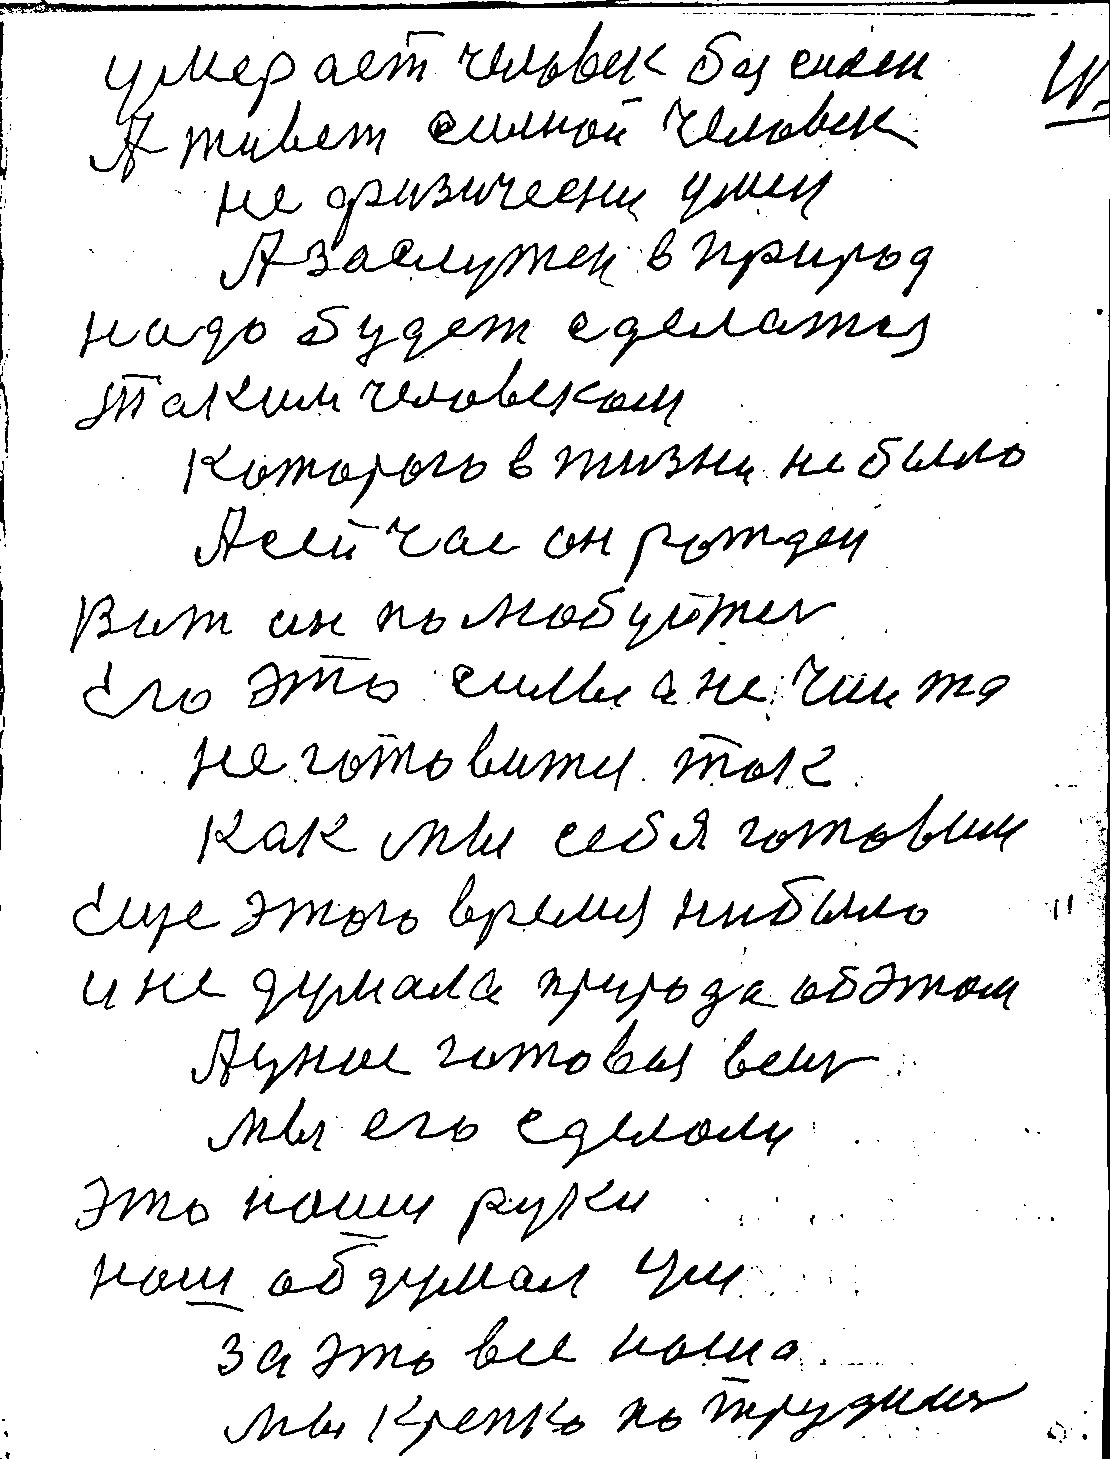 умерает человек без силен
А живет силной человек
не физичесни умен
А заслужен в природ
надо будет сделатся
таким человеком
Которого в жизни не было
А сейчас он рожден
Вот он полюбуйтес
Его это силы а не чии то
не готовится так
Как мы себя готовим
Еще этого время нибыло
и не думала природа об этом
А унас готовая весч
мы его сделали
это наши руки
наш обдумал ум
за это все наша
мы крепко потрудилис